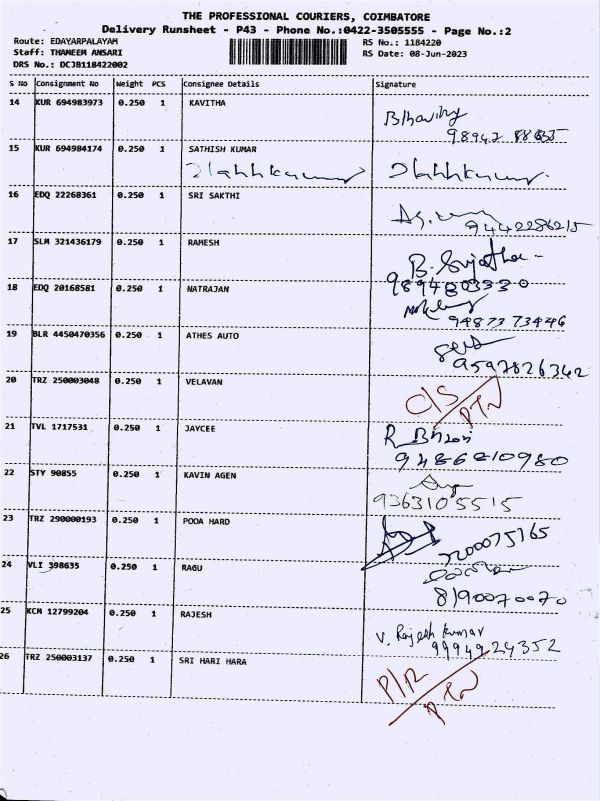 THE PROFESSIONAL COURIERS, COIMBATORE
Delivery Runsheet - P43 - Phone No.:0422-3505555 - Page No.:2
Route: EDAYARPALAYAM RS No.: 1184220
Staff: THAMEEM ANSARI RS Date: 08-Jun-2023
DRS No.: DCJB118422002
S No Consignment No Weight PCS Consignee Details Signature
14 KUR 694983973 0.250 1 KAVITHA
15 KUR 694984174 0.250 1 SATHISH KUMAR
16 EDQ 22268361 0.250 1 SRI SAKTHI
9442286215
17 SLM 321436179 0.250 1 RAMESH
B. Sujatha
9894803330
18 EDQ 20168581 0.250 1 NATRAJAN
9487373446
19 BLR 4450470356 0.250 1 ATHES AUTO
9597826342
20 TRZ 250003048 0.250 1 VELAVAN
C/S
PTN
21 TVL 1717531 0.250 1 JAYCEE
9486810980
22 STY 90855 0.250 1 KAVIN AGEN
9363105515
23 TRZ 290000193 0.250 1 POOA HARD
7200075765
24 VLI 398635 0.250 1 RAGU
8190070070
25 KCM 12799204 0.250 1 RAJESH
V. Rajesh Kumar
9994924352
26 TRZ 250003137 0.250 1 SRI HARI HARA
P/R
PTN